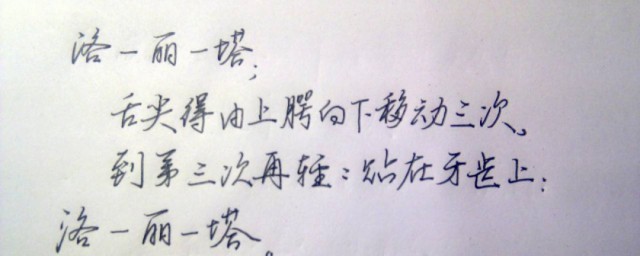 洛一丽一塔;
舌尖得由上腭向下移动三次、
到第三次再轻:贴在牙齿上:
洛一丽一塔。